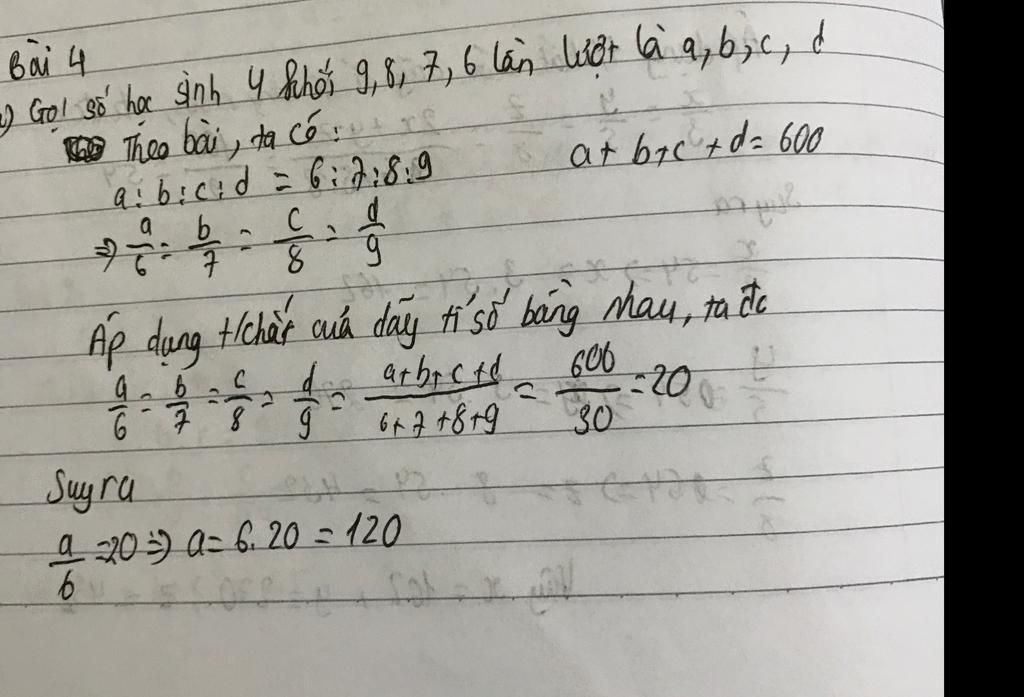 Bài 4
Gọi số học sinh 4 khối 9, 8, 7, 6 lần lượt là a, b, c, d
Theo bài, ta có: a + b + c + d = 600
a : b : c : d = 6 : 7 : 8 : 9
⇒ a/6 = b/7 = c/8 = d/9
Áp dụng t/chất cuả dãy tỉ số bằng nhau, ta đc
a/6 = b/7 = c/8 = d/9 = (a+b+c+d)/(6+7+8+9) = 600/30 = 20
Suy ra
a/6 = 20 ⇒ a = 6.20 = 120